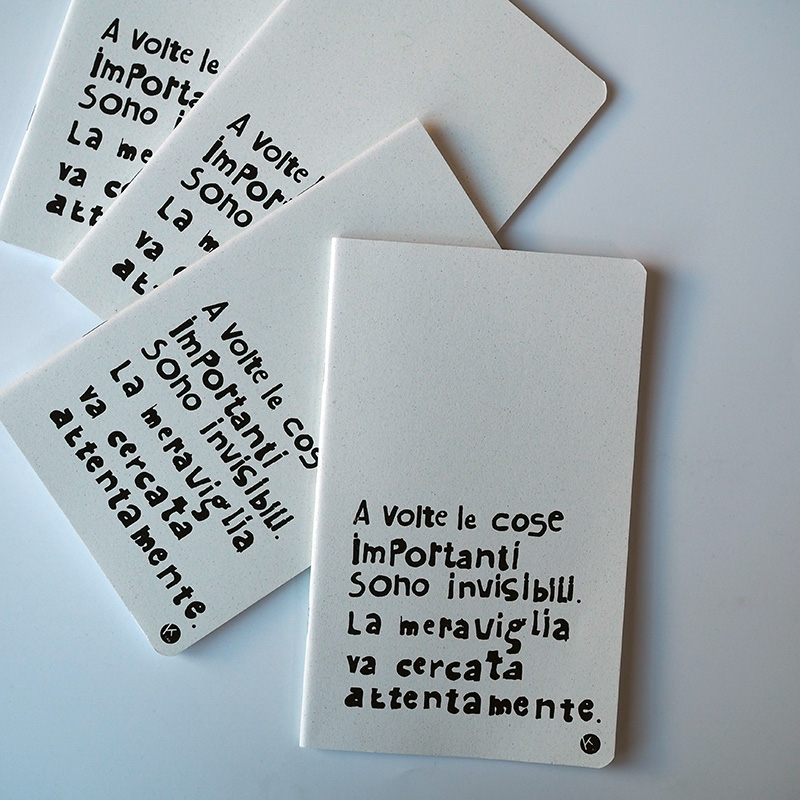 A volte le
importa
sono i
La me
va c
att
A volte l
impor
sono
La m
va
at
A volte le cos
importanti
sono invisibili.
La meraviglia
va cercata
attentamente.
K
A volte le cose
importanti
sono invisibili.
La meraviglia
va cercata
attentamente.
K